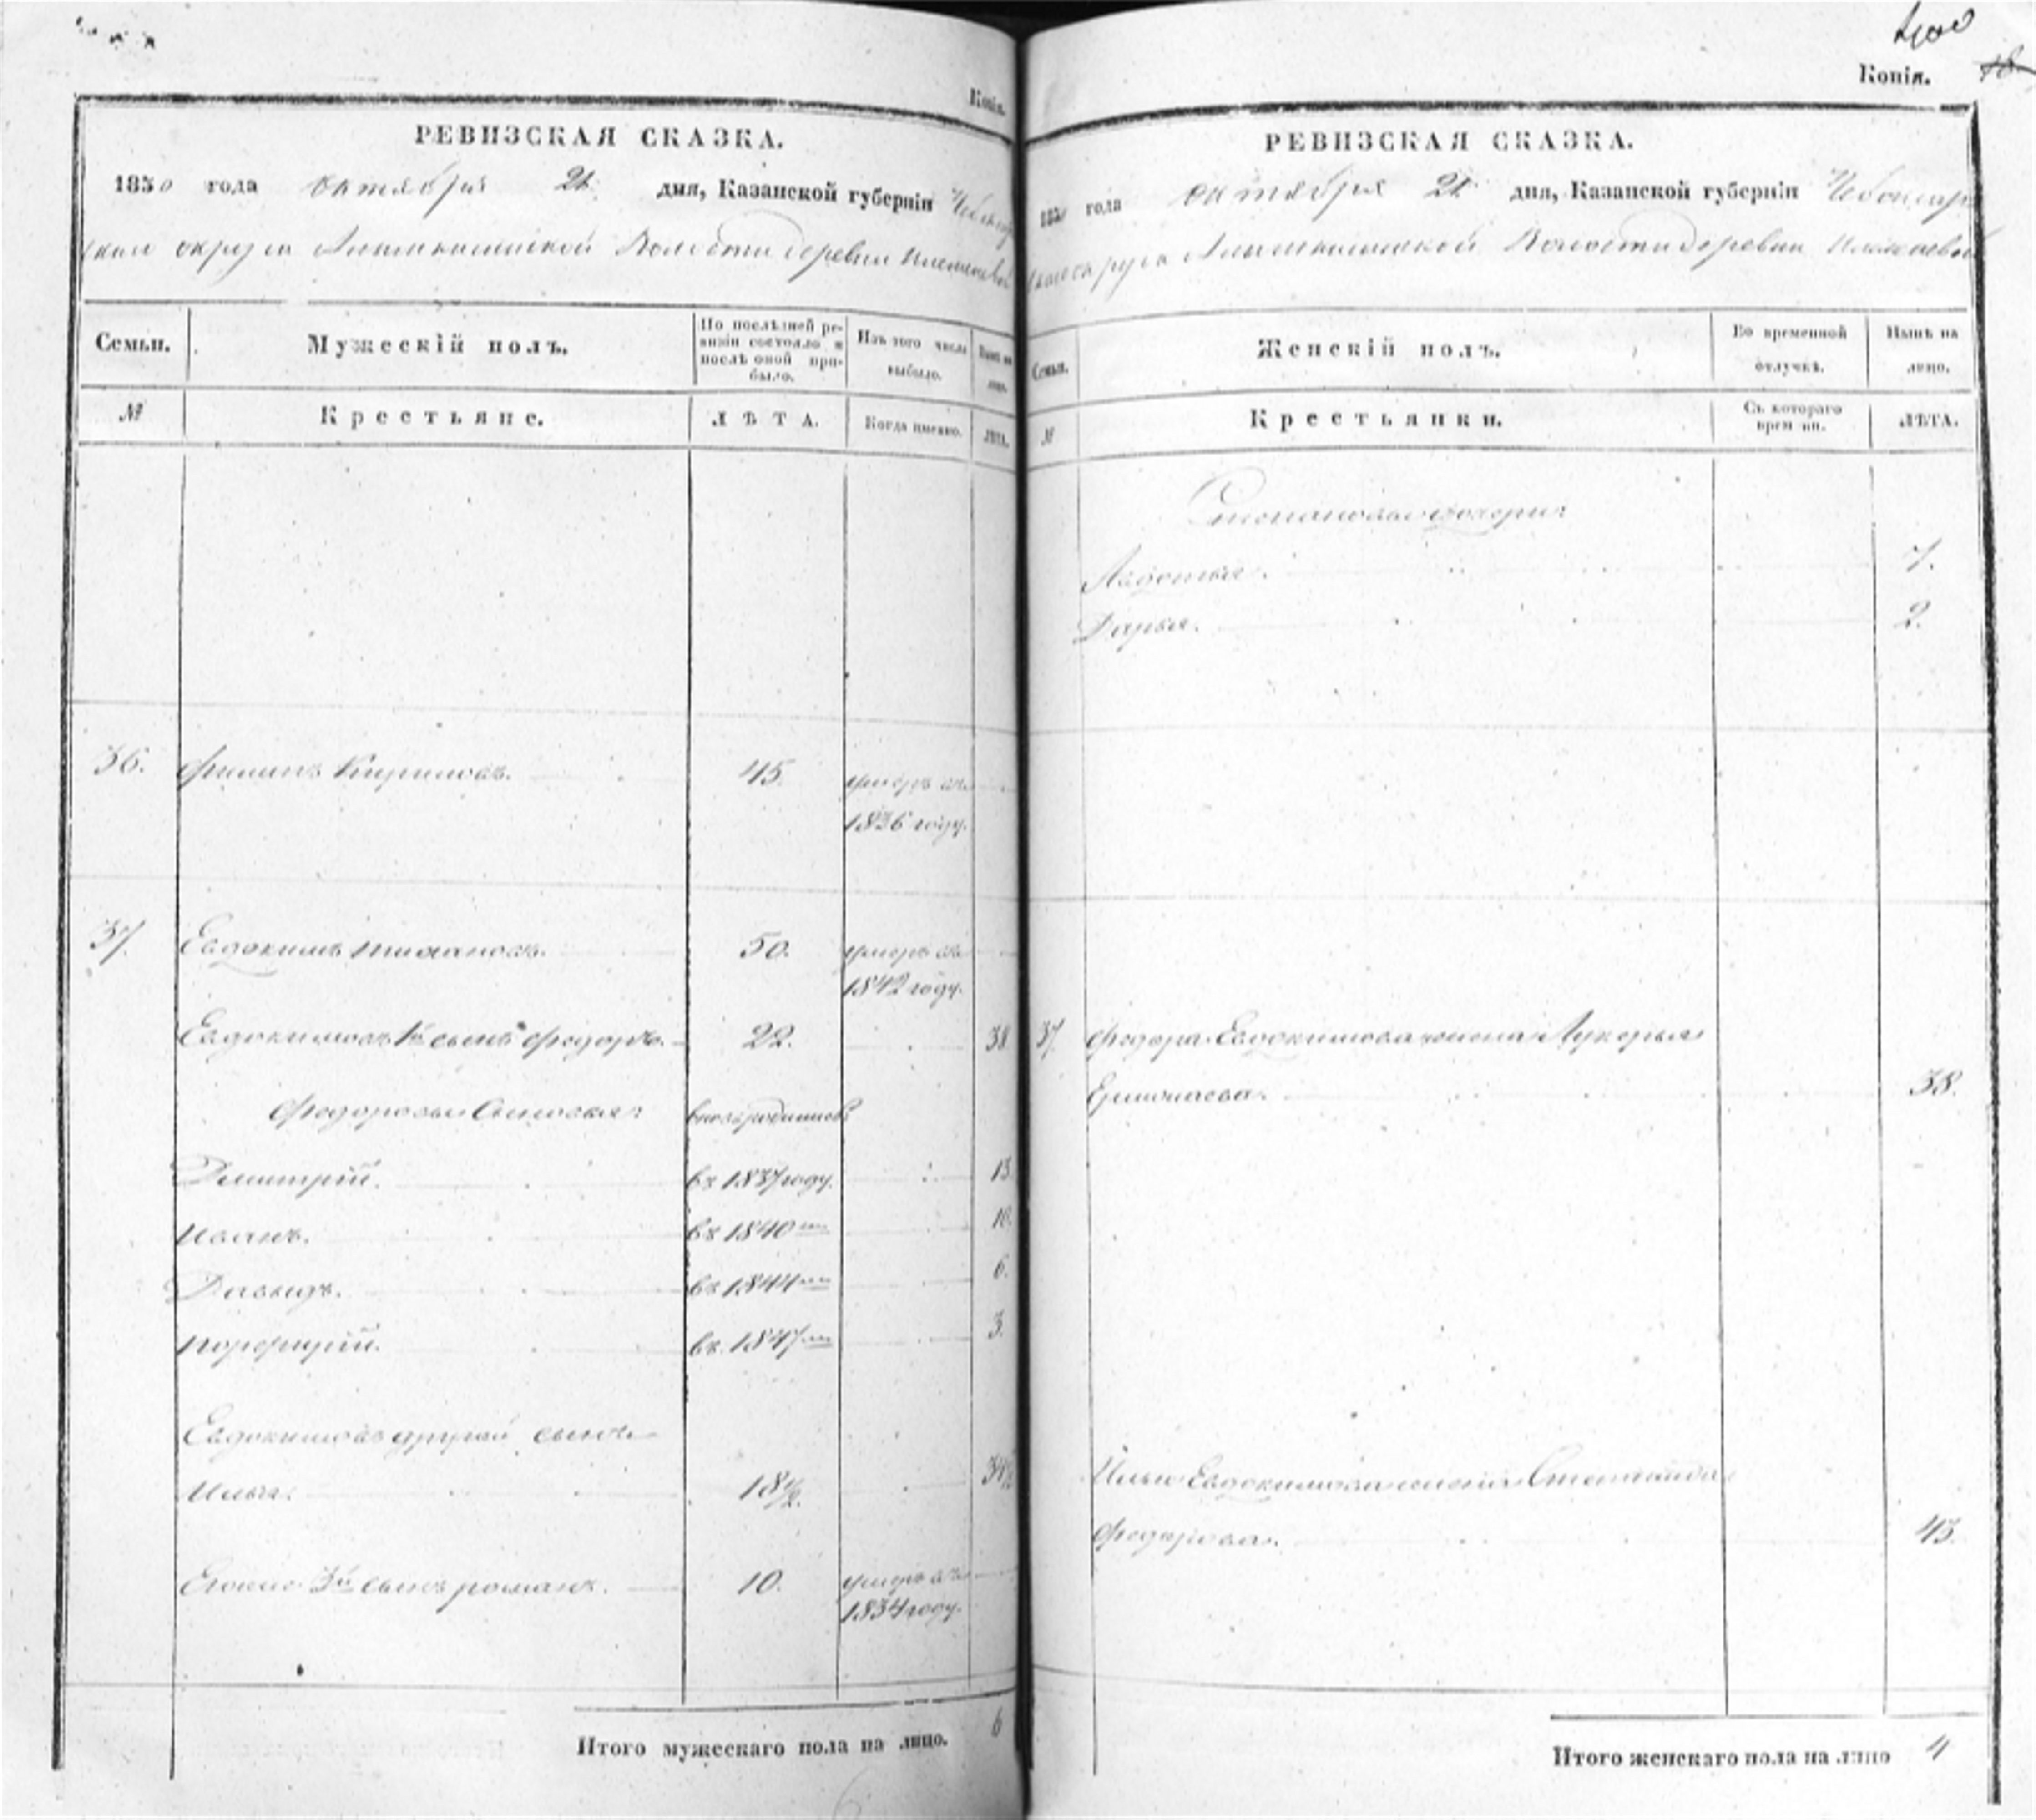 Копія.
РЕВИЗСКАЯ СКАЗКА.
1850 года октября 21 дня, Казанской губерніи Чебоксар
скаго округа Волости деревни
Семьи.
Мужескій полъ.
По послѣдней ре-
визіи состояло и
послѣ оной при-
было.
Изъ того числа
выбыло.
Нынѣ на
лицо.
№
Крестьяне.
ЛѢТА.
Когда именно.
ЛѢТА.
36. Филипъ Кириловъ. 45. умеръ въ
1836 году.
37. Евдокимъ 50. умеръ въ
1842 году.
Евдокимовъ 1й сынъ Федоръ. 22. 38
Федоровы Сыновья: вновьродились
Дмитрій. въ 1837 году. 13.
Иванъ. въ 1840 10.
Давыдъ. въ 1844 6.
Порфирій. въ 1847 3.
Евдокимовъ другой сынъ
Илья. 18½. 34½
Егоже 3й сынъ романъ. 10. умеръ въ
1834 году.
Итого мужескаго пола на лицо. 6
Копія.
РЕВИЗСКАЯ СКАЗКА.
1850 года октября 21 дня, Казанской губерніи Чебоксар
скаго округа Волости деревни
Семьи.
Женскій полъ.
Во временной
отлучкѣ.
Нынѣ на
лицо.
№
Крестьянки.
Съ котораго
времени.
ЛѢТА.
Степановы дочери:
Авдотья. 7.
Дарья. 2.
37 Федора Евдокимова жена Лукерья
Ермолаева. 38.
Ильи Евдокимова жена Степанида
Федорова. 43.
Итого женскаго пола на лицо 4